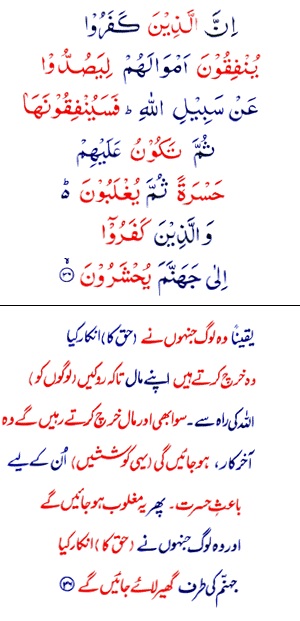 اِنَّ الَّذِيْنَ كَفَرُوْا
يُنْفِقُوْنَ اَمْوَالَهُمْ لِيَصُدُّوْا
عَنْ سَبِيْلِ اللّٰهِ ؕ فَسَيُنْفِقُوْنَهَا
ثُمَّ تَكُوْنُ عَلَيْهِمْ
حَسْرَةً ثُمَّ يُغْلَبُوْنَ ؕ
وَالَّذِيْنَ كَفَرُوْۤا
اِلٰى جَهَنَّمَ يُحْشَرُوْنَ ۙ ﴿۳۶﴾
یقیناً وہ لوگ جنہوں نے (حق کا) انکار کیا
وہ خرچ کرتے ہیں اپنے مال تاکہ روکیں (لوگوں کو)
اللہ کی راہ سے۔ سو ابھی اور مال خرچ کرتے رہیں گے وہ
آخر کار، ہو جائیں گی (یہی کوششیں) اُن کے لیے
باعثِ حسرت۔ پھر یہ مغلوب ہو جائیں گے
اور وہ لوگ جنہوں نے (حق کا) انکار کیا
جہنّم کی طرف گھیر لائے جائیں گے ﴿۳۶﴾